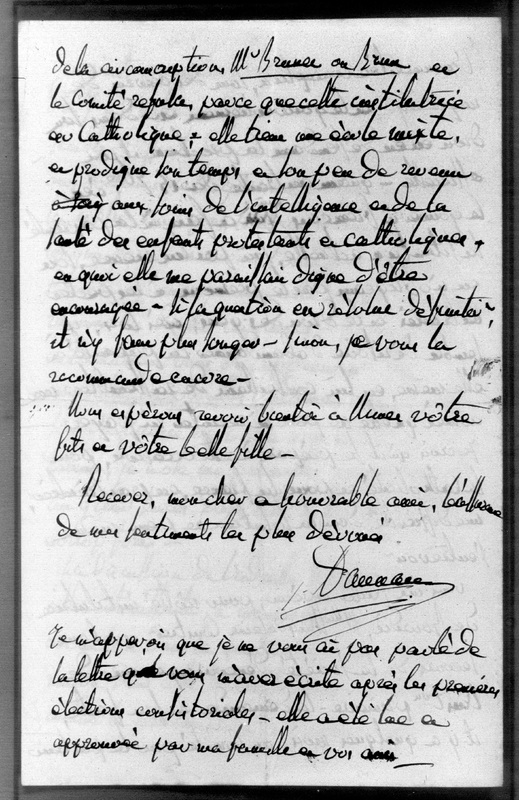 de la circonscription, Mr Brunner ou Brun en
le Comité refusa, parce que cette institutrice
est Catholique; elle tient une école mixte,
en prodigue son temps, et son peu de revenu
aux soins de l'intelligence et de la
santé des enfants protestants et catholiques,
en quoi elle me paraissait digne d'être
encouragée - si la question est résolue définitiv.
il n'y faut plus songer - sinon, je vous la
recommande encore -
Nous espérons revoir bientôt à Nimes vôtre
fils et vôtre belle fille -
Recevez, mon cher et honorable ami, l'assurance
de mes sentiments les plus dévoués
Je m'apperçois que je ne vous ai pas parlé de
la lettre que vous m'avez écrite après les premières
élections consistoriales - elle a été lue et
approuvée par ma famille et vos amis